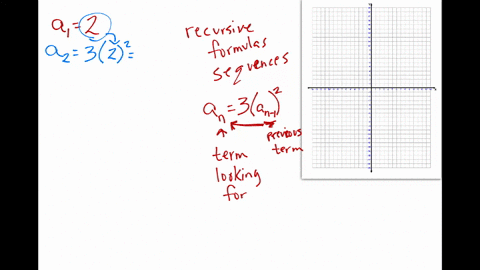 a₁=2
a₂=3(2)²=
recursive
formulas
sequences
aₙ=3(aₙ₋₁)²
term
looking
for
previous
term